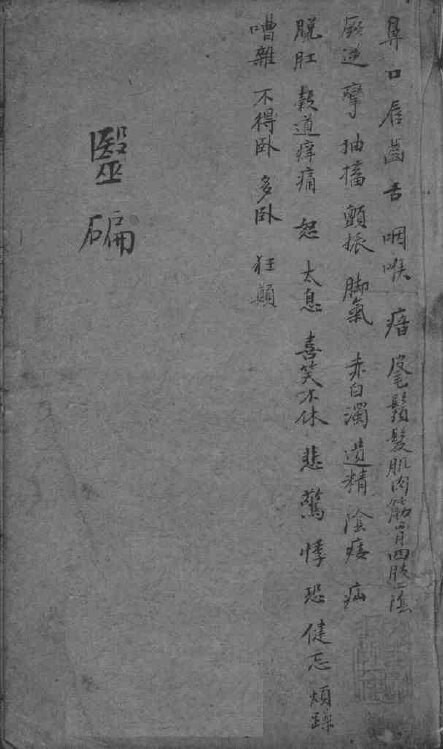 鼻口唇齒舌咽喉 瘖 皮毛鬚髮肌肉筋骨四肢二陰
厥逆 攣 抽搐 顫振 脚氣 赤白濁 遗精 陰痿 疝
脫肛 穀道痒痛 怒 太息 喜笑不休 悲 驚 悸 恐 健忘 煩躁
嘈雜 不得卧 多卧 狂顛
毉碥